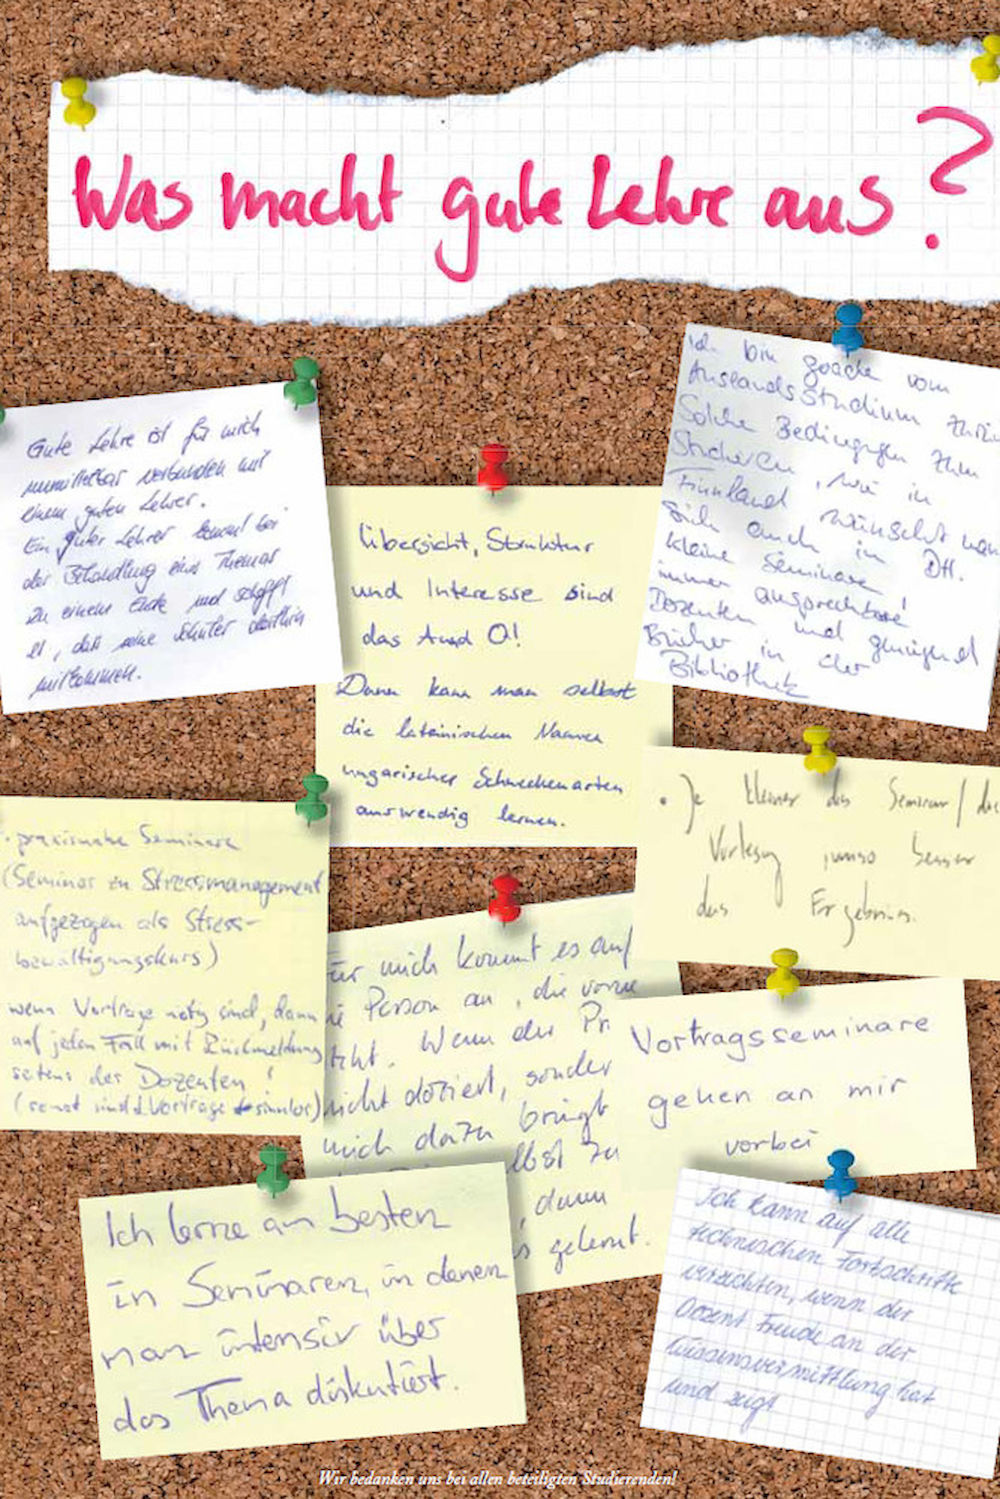 Was macht gute Lehre aus?
Gute Lehre ist für mich
unmittelbar verbunden mit
einem guten Lehrer.
Ein guter Lehrer kommt bei
der Behandlung eines Themas
zu einem Ende und schafft
es, daß seine Schüler dorthin
mitkommen.
Übersicht, Struktur
und Interesse sind
das A und O!
Dann kann man selbst
die lateinischen Namen
ungarischer Schneckenarten
auswendig lernen.
Ich bin gerade vom
AuslandsStudium
Solche Bedingungen zum
Studieren, wie in
Finnland wünscht man
sich auch in DH.
kleine Seminare,
immer ansprechbare
Dozenten und genügend
Bücher in der
Bibliothek
· praxisnahe Seminare
(Seminar zu Stressmanagement
aufgezogen als Stress-
bewältigungskurs)
wenn Vorträge nötig sind, dann
auf jeden Fall mit Rückmeldung
seitens des Dozenten!
(sonst sind Vorträge sinnlos)
• Je kleiner das Seminar / die
Vorlesung umso besser
das Ergebnis.
für mich kommt es auf
ie Person an, die vorne
teht. Wenn der Pr
nicht doziert, sonder
mich dazu bringt
lbst zu
, dann
s gelernt.
Vortragsseminare
gehen an mir
vorbei
Ich lerne am besten
in Seminaren, in denen
man intensiv über
das Thema diskutiert.
Ich kann auf alle
technischen Fortschritte
verzichten, wenn der
Dozent Freude an der
Wissensvermittlung hat
und zeigt
Wir bedanken uns bei allen beteiligten Studierenden!